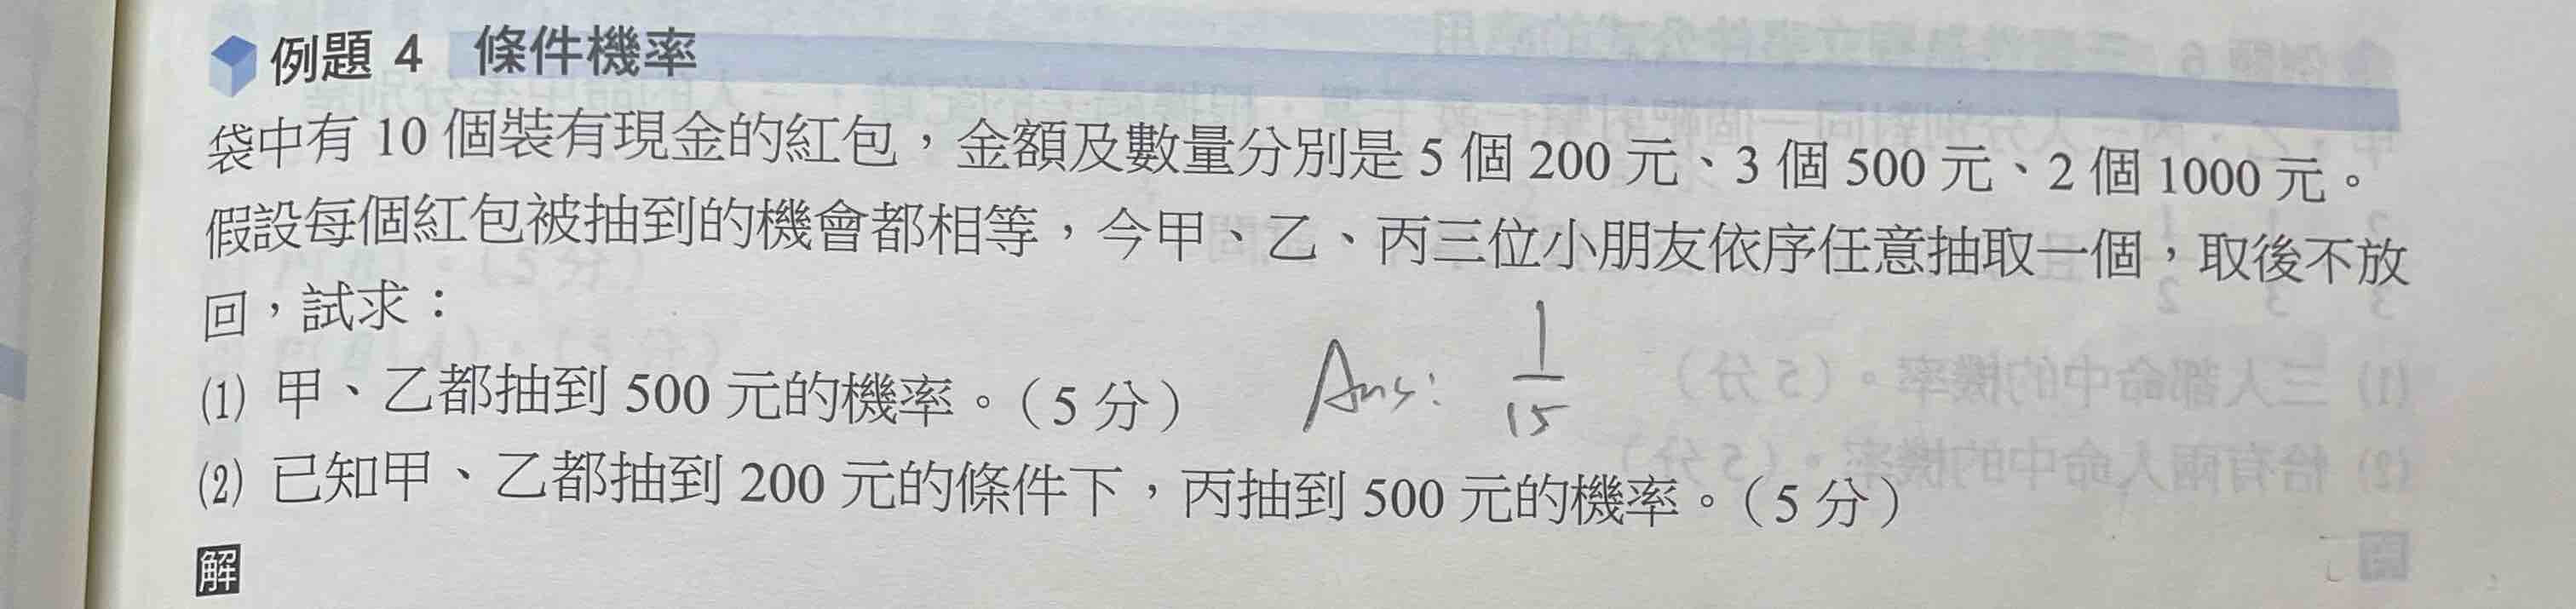 例題 4 條件機率
袋中有 10 個裝有現金的紅包，金額及數量分別是 5 個 200 元、3 個 500 元、2 個 1000 元。
假設每個紅包被抽到的機會都相等，今甲、乙、丙三位小朋友依序任意抽取一個，取後不放
回，試求：
(1) 甲、乙都抽到 500 元的機率。（5 分）
Ans: 1/15
(2) 已知甲、乙都抽到 200 元的條件下，丙抽到 500 元的機率。（5 分）
解